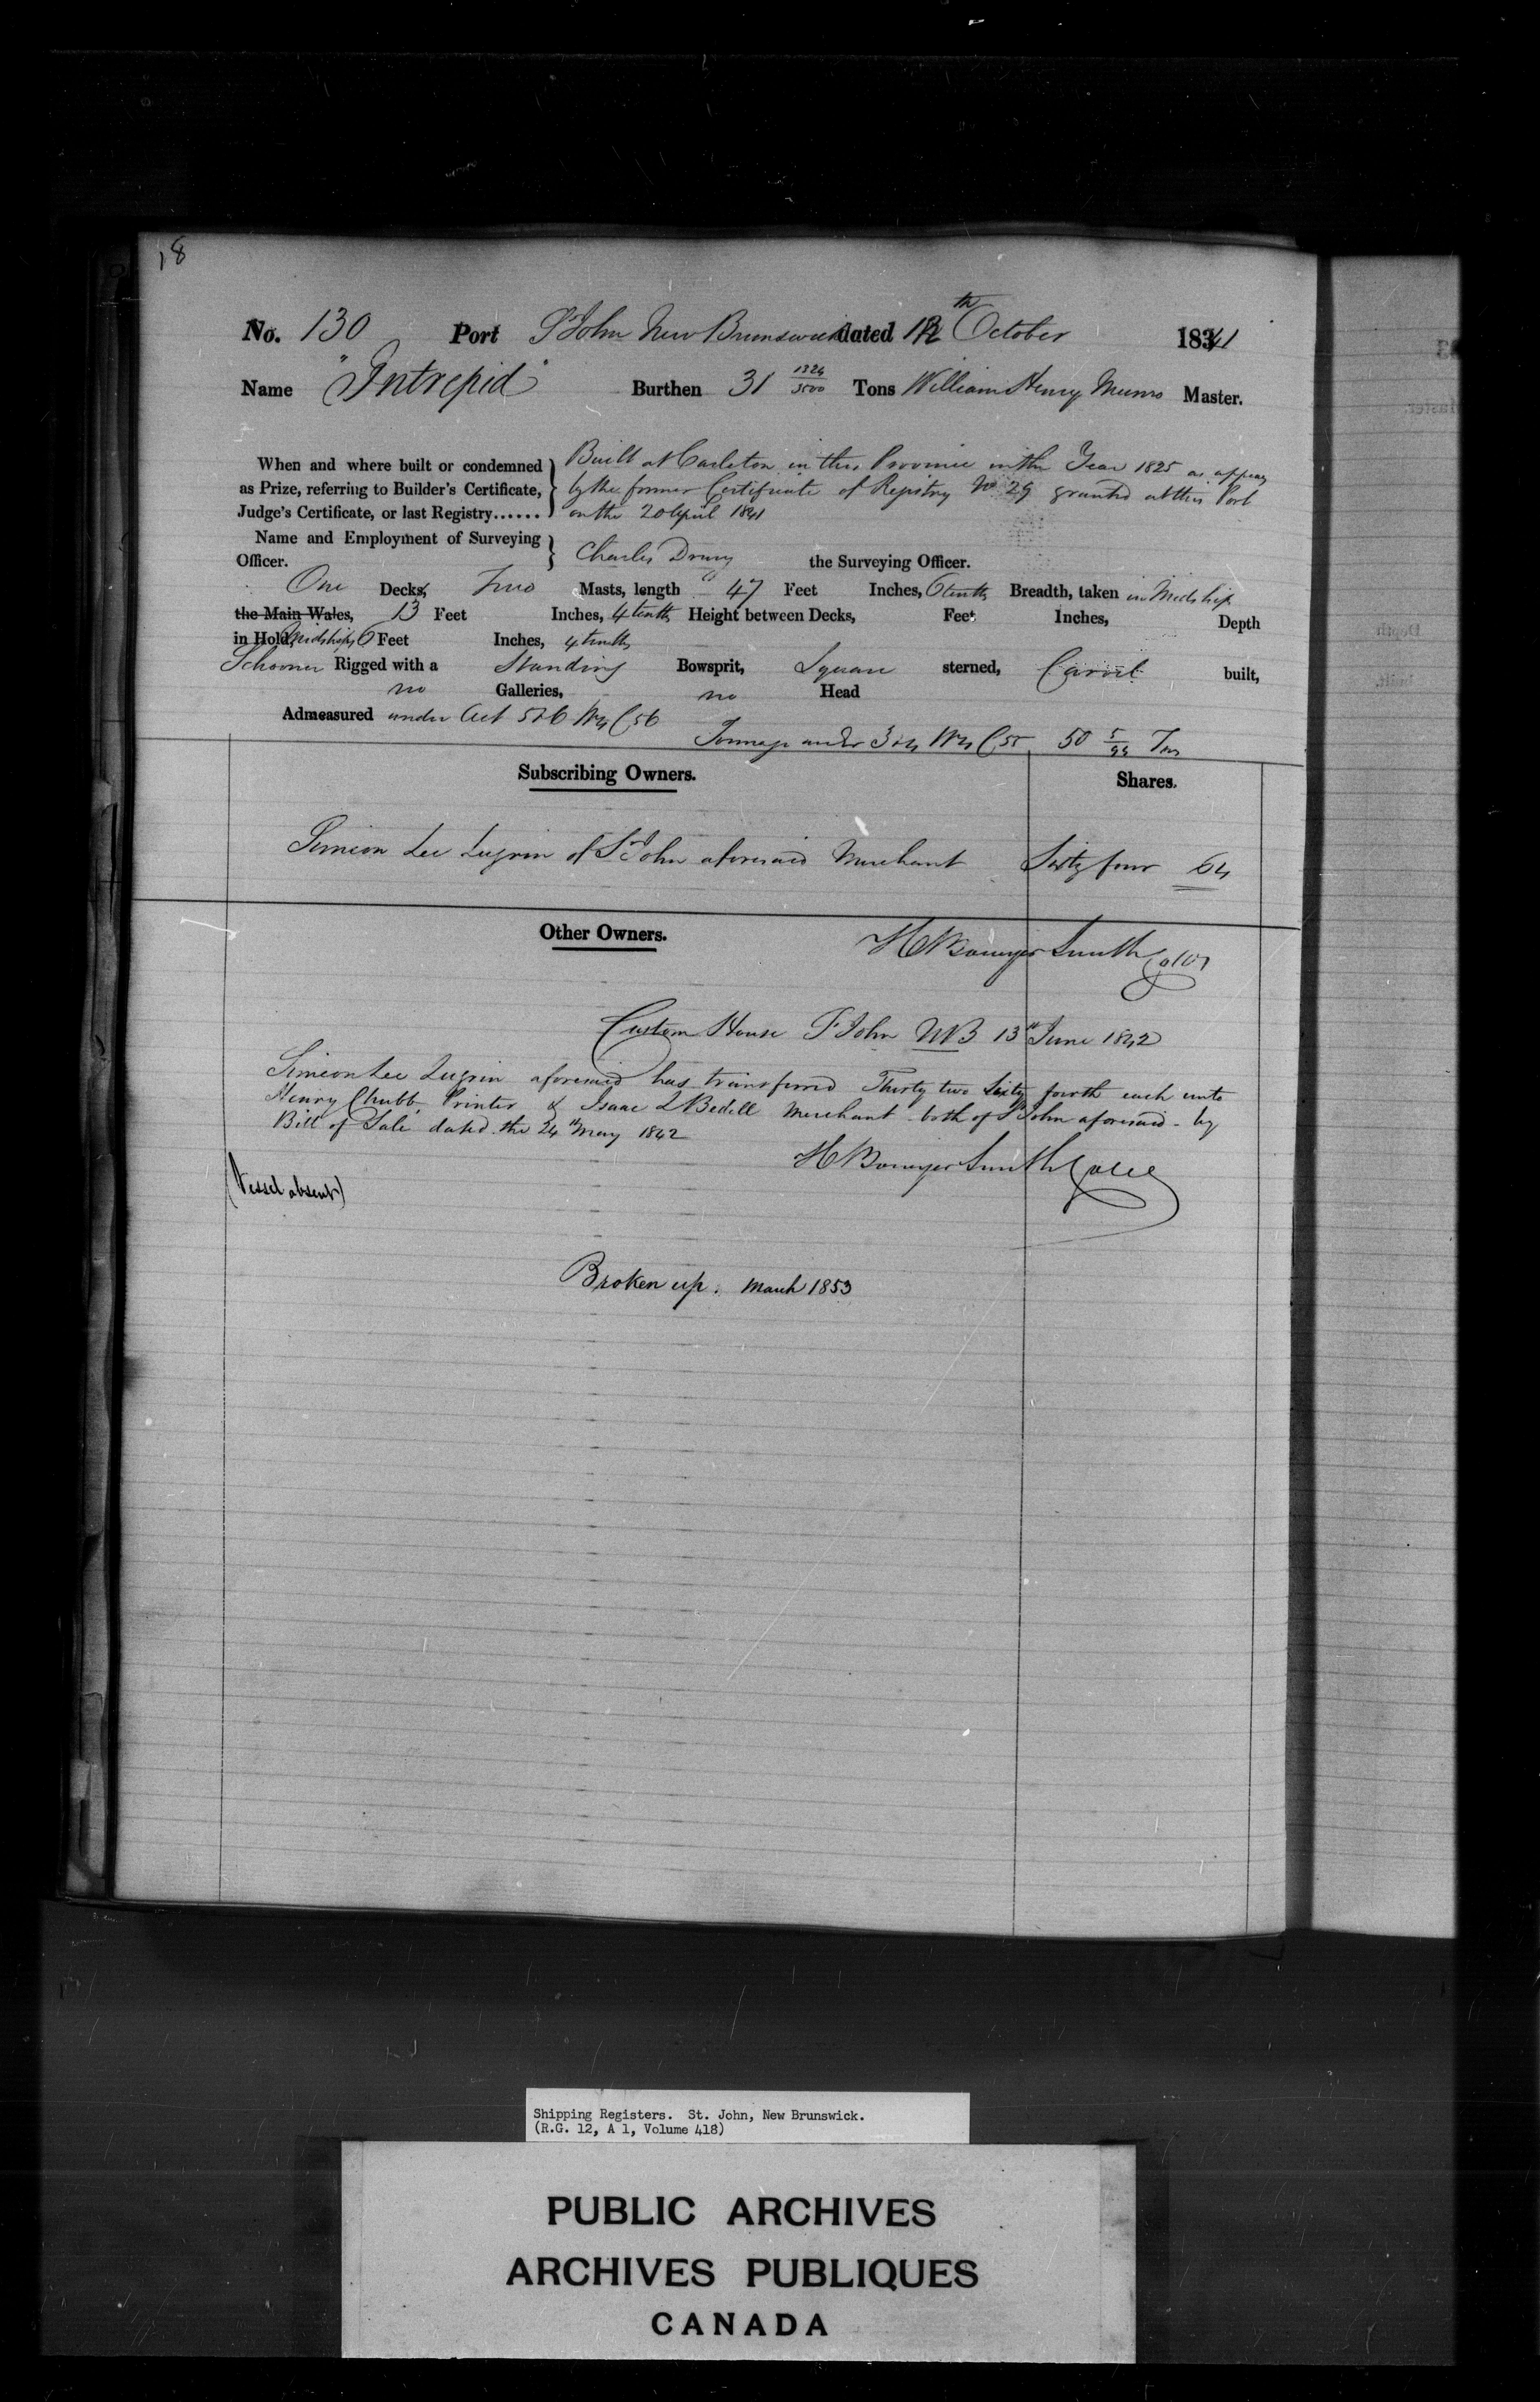 18
No. 130 Port St John New Brunswick dated 12th October 1841
Name "Intrepid" Burthen 31 1324/3500 Tons William Henry Munro Master.
When and where built or condemned Built at Carleton in this Province in the Year 1825 as appears
as Prize, referring to Builder's Certificate, by the former Certificate of Registry No 29 granted at this Port
Judge's Certificate, or last Registry...... on the 20 April 1841
Name and Employment of Surveying
Officer. Charles Drury the Surveying Officer.
One Decks, Two Masts, length 47 Feet Inches, 6 tenths Breadth, taken in Midships
the Main Wales, 13 Feet Inches, 4 tenths Height between Decks, Feet Inches, Depth
in Hold, Midships 6 Feet Inches, 4 tenths
Schooner Rigged with a Standing Bowsprit, Square sterned, Carvel built,
no Galleries, no Head
Admeasured under Act 5 & 6 Wm 4 C 56
Tonnage under 3 & 4 Wm 4 C 55, 50 5/94 Tons
Subscribing Owners. Shares.
Simeon Lee Lugrin of St John aforesaid Merchant Sixty four 64
Other Owners.
H Bowyer Smith Collr
Custom House St John NB 13th June 1842
Simeon Lee Lugrin aforesaid has transferred Thirty two Sixty fourth each unto
Henry Chubb, Printer & Isaac L Bedell Merchant both of St John aforesaid - by
Bill of Sale dated the 24th May 1842
H Bowyer Smith Coll
(Vessel absent)
Broken up. March 1853
Shipping Registers. St. John, New Brunswick.
(R.G. 12, A 1, Volume 418)
PUBLIC ARCHIVES
ARCHIVES PUBLIQUES
CANADA